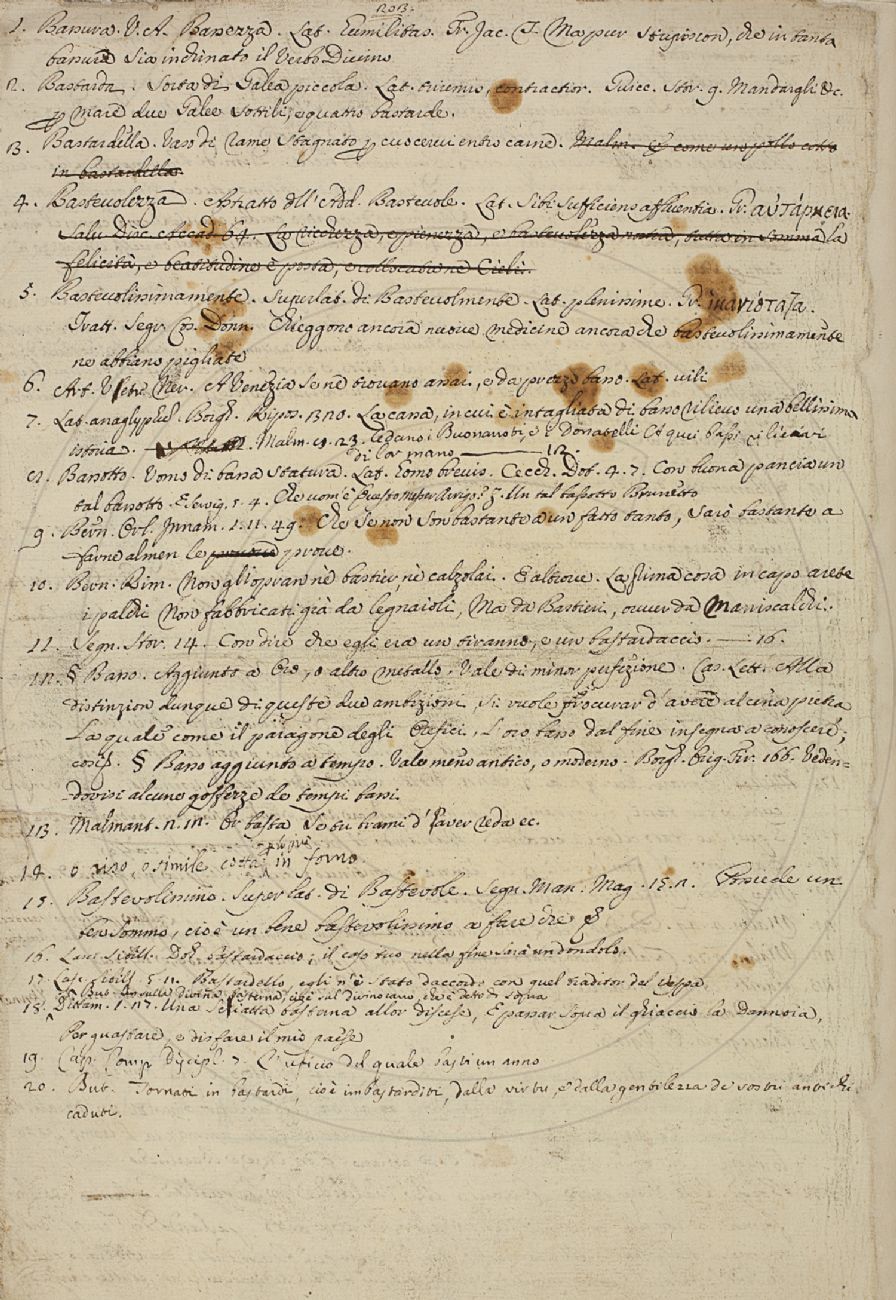 203.
1. Bassura. V. A. Bassezza. Lat. humilitas. Fr. Jac. T. Ma pur stupiscon, che in tanta
bassura sia inchinato il Verbo Divino
2. Bastarda. Sorta di Galea piccola. Lat. triremis contractior. Guicc. Stor. 9. Mandargli &c.
p mare due Galee sottili, e quattro bastarde.
3. Bastardella. Vaso di rame stagnato p cuocervi entro carne. Malm. E come un pollo cotto
in bastardella.
4. Bastevolezza. Astratto dell' Add. Bastevole. Lat. sibi sufficiens affluentia. Gr. αὐτάρκεια.
Salv. Disc. Accad. 64. La ricchezza, e pienezza, e bastevolezza nostra, tutta in somma la
felicità, e beatitudine è posta, e collocata ne' Cieli.
5. Bastevolissimamente. Superlat. di Bastevolmente. Lat. plenissime. Gr. ἱκανώτατα.
Tratt. Segr. Cos. Donn. Chieggono ancora nuove medicine ancora che bastevolissimamente
ne abbiano pigliate
6. Art. Vetr. Ner. A Venezia se ne trovano assai, e da prezzo basso. Lat. vili
7. Lat. anaglypha. Borgh. Ripos. 320. La cassa, in cui è intagliata di basso rilievo una bellissima
istoria. Malm. 23. Cedano i Buonarroti, e i Donatelli A quei bassi rilievi
di lor mano 12.
8. Bassotto. Uomo di bassa statura. Lat. homo brevis. Cecch. Dot. 4. 7. Con buona pancia un
tal bassotto. E Servig. 5. 4. Che uom' è questo messer Arrigo? Z. Un tal bassotto Brunetto
9. Bern. Orl. Innam. 1. 11. 49. Che se non son bastante a un fatto tanto, sarò bastante a
farne almen le prove.
10. Bern. Rim. Non gli opran nè bastier, nè calzolai. E altrove. La prima cosa in capo avete
i paldi Non fabbricati già da legnaioli, Ma da Bastieri, ovver da Maniscalchi.
11. Segn. Stor. 14. Con dire che egli era un tiranno, e un bastardaccio. 16.
12. § Basso. Aggiunto a Oro, o altro metallo, vale di minor perfezione. Cas. Lett. Alla
distinzion dunque di queste due ambizioni, si vuole procurar d'avere alcuna pietra
La quale come il paragone degli Orefici, L'oro basso dal fine insegna a conoscere;
così. § Basso aggiunto a tempo. Vale meno antico, o moderno. Borgh. Orig. Fir. 166. Veden-
dovisi alcune gofferze de tempi bassi.
13. Malmant. 2. 12. Or basta, se tu brami d'haver reda ec.
14. o riso, o simile cotta in forno
15. Bastevolissimo. Superlat. di Bastevole. Segn. Man. Mag. 15. 2. Possiede un
ben sommo, cioè un bene bastevolissimo a fare che
16. Lasc. Sibill. Deh bastardaccio; il capo tuo nella fine sarà un dondolo.
17. Lasc. Sibill. 5. 11. Bastardello, egli n'è stato d'accordo con quel traditor del Vespa
18. Dittam. 1. 27. Una scelatta basterna allor discese, E passar sovra il ghiaccio la Dannoia,
Per guastare, e disfare il mio paese
19. Cap. Comp. Discipl. 7. L'uficio del quale basti un anno
20. But. Tornati in bastardi, cioè imbastarditi, dalla virtu, e dalla gentilezza de vostri antichi
caduti.